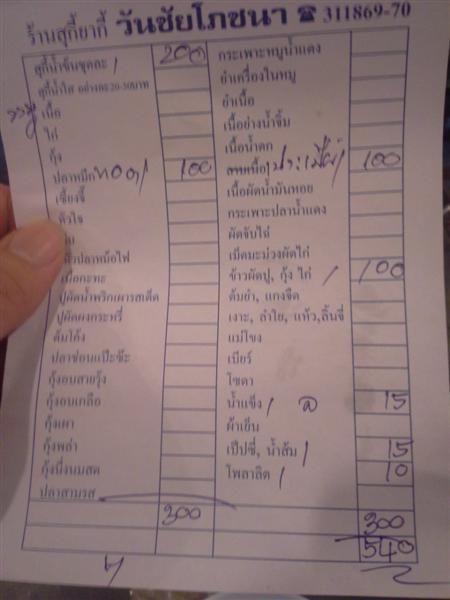 ร้านสุกี้ยากี้ วันชัยโภชนา ☎ 311869-70
สุกี้น้ำข้นชุดละ / 200
สุกี้น้ำใส อย่างละ 20-30บาท
เนื้อ
ไก่
กุ้ง
ปลาหมึก ทอด / 100
เซี่ยงจี้
หัวใจ
หัวปลาหม้อไฟ
เนื้อกะทะ
ปูผัดน้ำพริกเผารสเด็ด
ปูผัดผงกระหรี่
ต้มโค้ง
ปลาช่อนแป๊ะซ๊ะ
กุ้งอบสายรุ้ง
กุ้งอบเกลือ
กุ้งเผา
กุ้งพล่า
กุ้งนึ่งนมสด
ปลาสามรส
300
กระเพาะหมูน้ำแดง
ยำเครื่องในหมู
ยำเนื้อ
เนื้อย่างน้ำจิ้ม
เนื้อน้ำตก
100
เนื้อผัดน้ำมันหอย
กระเพาะปลาน้ำแดง
ผัดจับไฉ่
เม็ดมะม่วงผัดไก่
ข้าวผัดปู, กุ้ง ไก่ / 100
ต้มยำ, แกงจืด
เงาะ, ลำใย, แห้ว,ลิ้นจี่
แม่โขง
เบียร์
โซดา
น้ำแข็ง / 15
ผ้าเย็น
เป๊ปซี่, น้ำส้ม / 15
โพลาลิต / 10
300
540